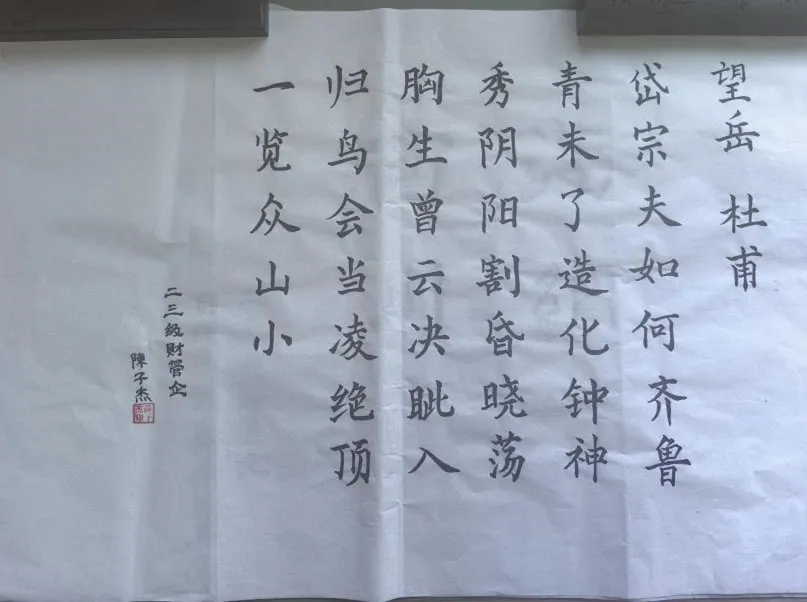 望岳 杜甫
岱宗夫如何齐鲁
青未了造化钟神
秀阴阳割昏晓荡
胸生曾云决眦入
归鸟会当凌绝顶
一览众山小
二三级财管企
陈子杰